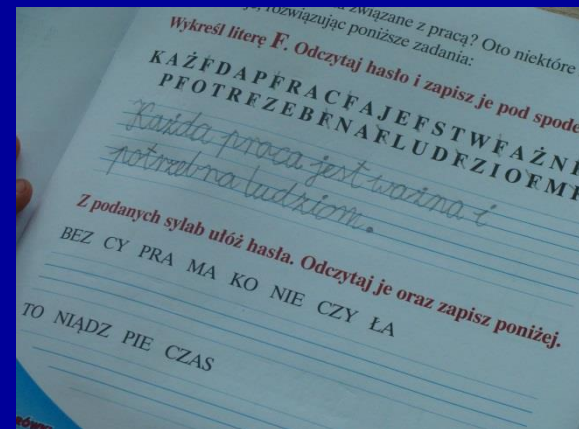 związane z pracą? Oto niektóre
rozwiązując poniższe zadania:
Wykreśl literę F. Odczytaj hasło i zapisz je pod spode
KAŻFDAPFRACFAJEFSTWFAŻN
PFOTRFZEBFNAFLUDFZIOFM
Każda praca jest ważna i
potrzebna ludziom.
Z podanych sylab ułóż hasła. Odczytaj je oraz zapisz poniżej.
BEZ CY PRA MA KO NIE CZY ŁA
TO NIĄDZ PIE CZAS